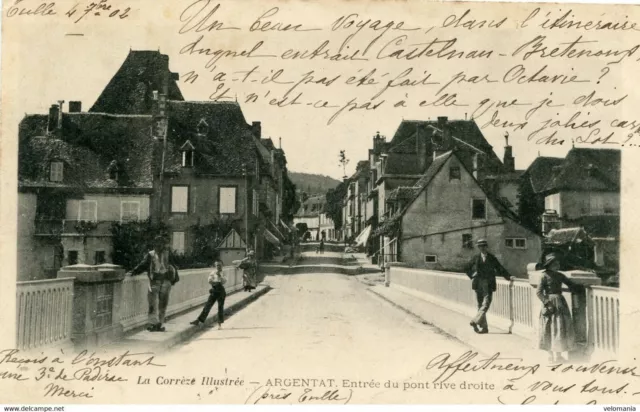 Tulle 4 7bre 02
Un beau Voyage, dans l'itinéraire
duquel entrait Castelnau-Bretenoux,
n'a-t-il pas été fait par Octavie ?
N'est-ce pas à elle que je dois
deux jolies cartes
du Lot
Reçois à l'instant
une 3e de Padirac
Merci
La Corrèze Illustrée — ARGENTAT. Entrée du pont rive droite
(près Tulle)
Affectueux souvenir
à vous tous.
velomania